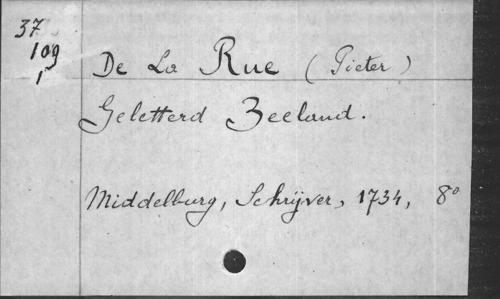 37
109
1
De La Rue (Pieter)
Geletterd Zeeland.
Middelburg, Schrijver, 1734, 8°